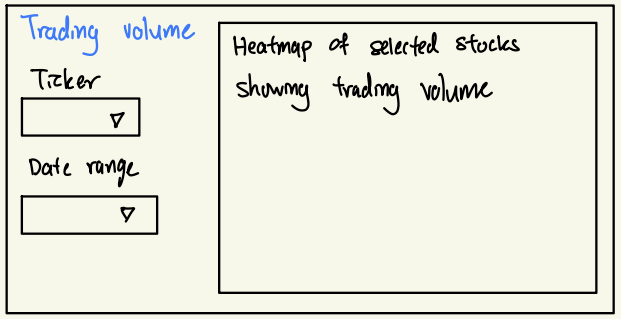 Trading volume
Ticker
Date range
Heatmap of selected stocks
showing trading volume